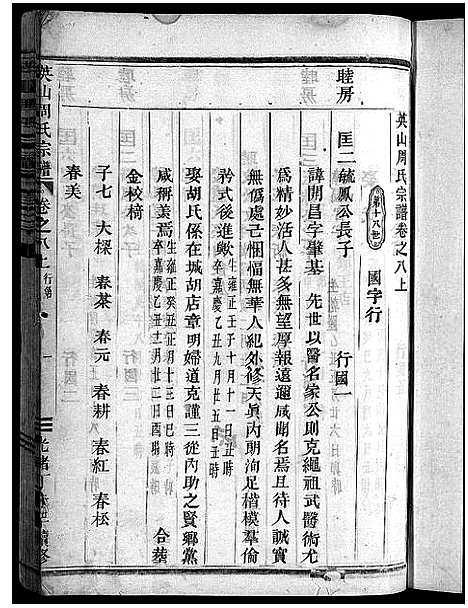 英山周氏宗譜卷之八上
第十八世
國字行
睦房
匡二毓鳳公長子
行國一
諱開昌字肇基 先世以醫名家公則克繩祖武醫術尤
爲精妙活人甚多無望厚報遠邇咸耑名焉且待人誠實
無僞處己悃愊無華人紀外修天眞內朗洵足楷模羣倫
矜式後進歟
生雍正壬子十月十一日丑時
卒嘉慶乙丑九月廿五日丑時
娶胡氏係在城胡店章明婦道克謹三從內助之賢鄉黨
咸稱美焉
生雍正癸丑正月十三日巳時
卒嘉慶乙丑十二月廿二日酉時
合葬
金校椅
子七 大樑 春茶 春元 春耕 春紅 春松
春美
英山周氏宗譜
卷之八上
行第
一
光緒丁
續修